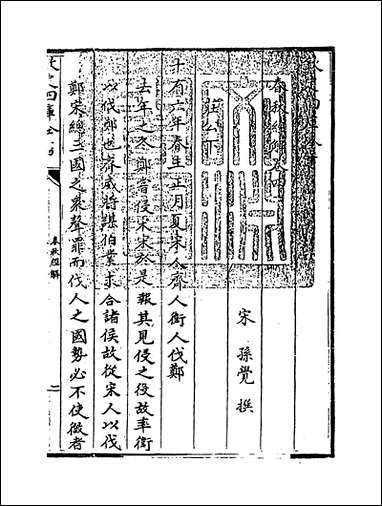 欽定四庫全書
春秋經解卷四
宋 孫覺 撰
莊公下
十有六年春王正月夏宋人齊人衛人伐鄭
去年之冬鄭嘗侵宋宋於是報其見侵之役故率衛
以伐鄭也齊威將謀伯業求合諸侯故從宋人以伐
鄭宋總三國之衆聲罪而伐人之國勢必不使微者
欽定四庫全書
春秋經解